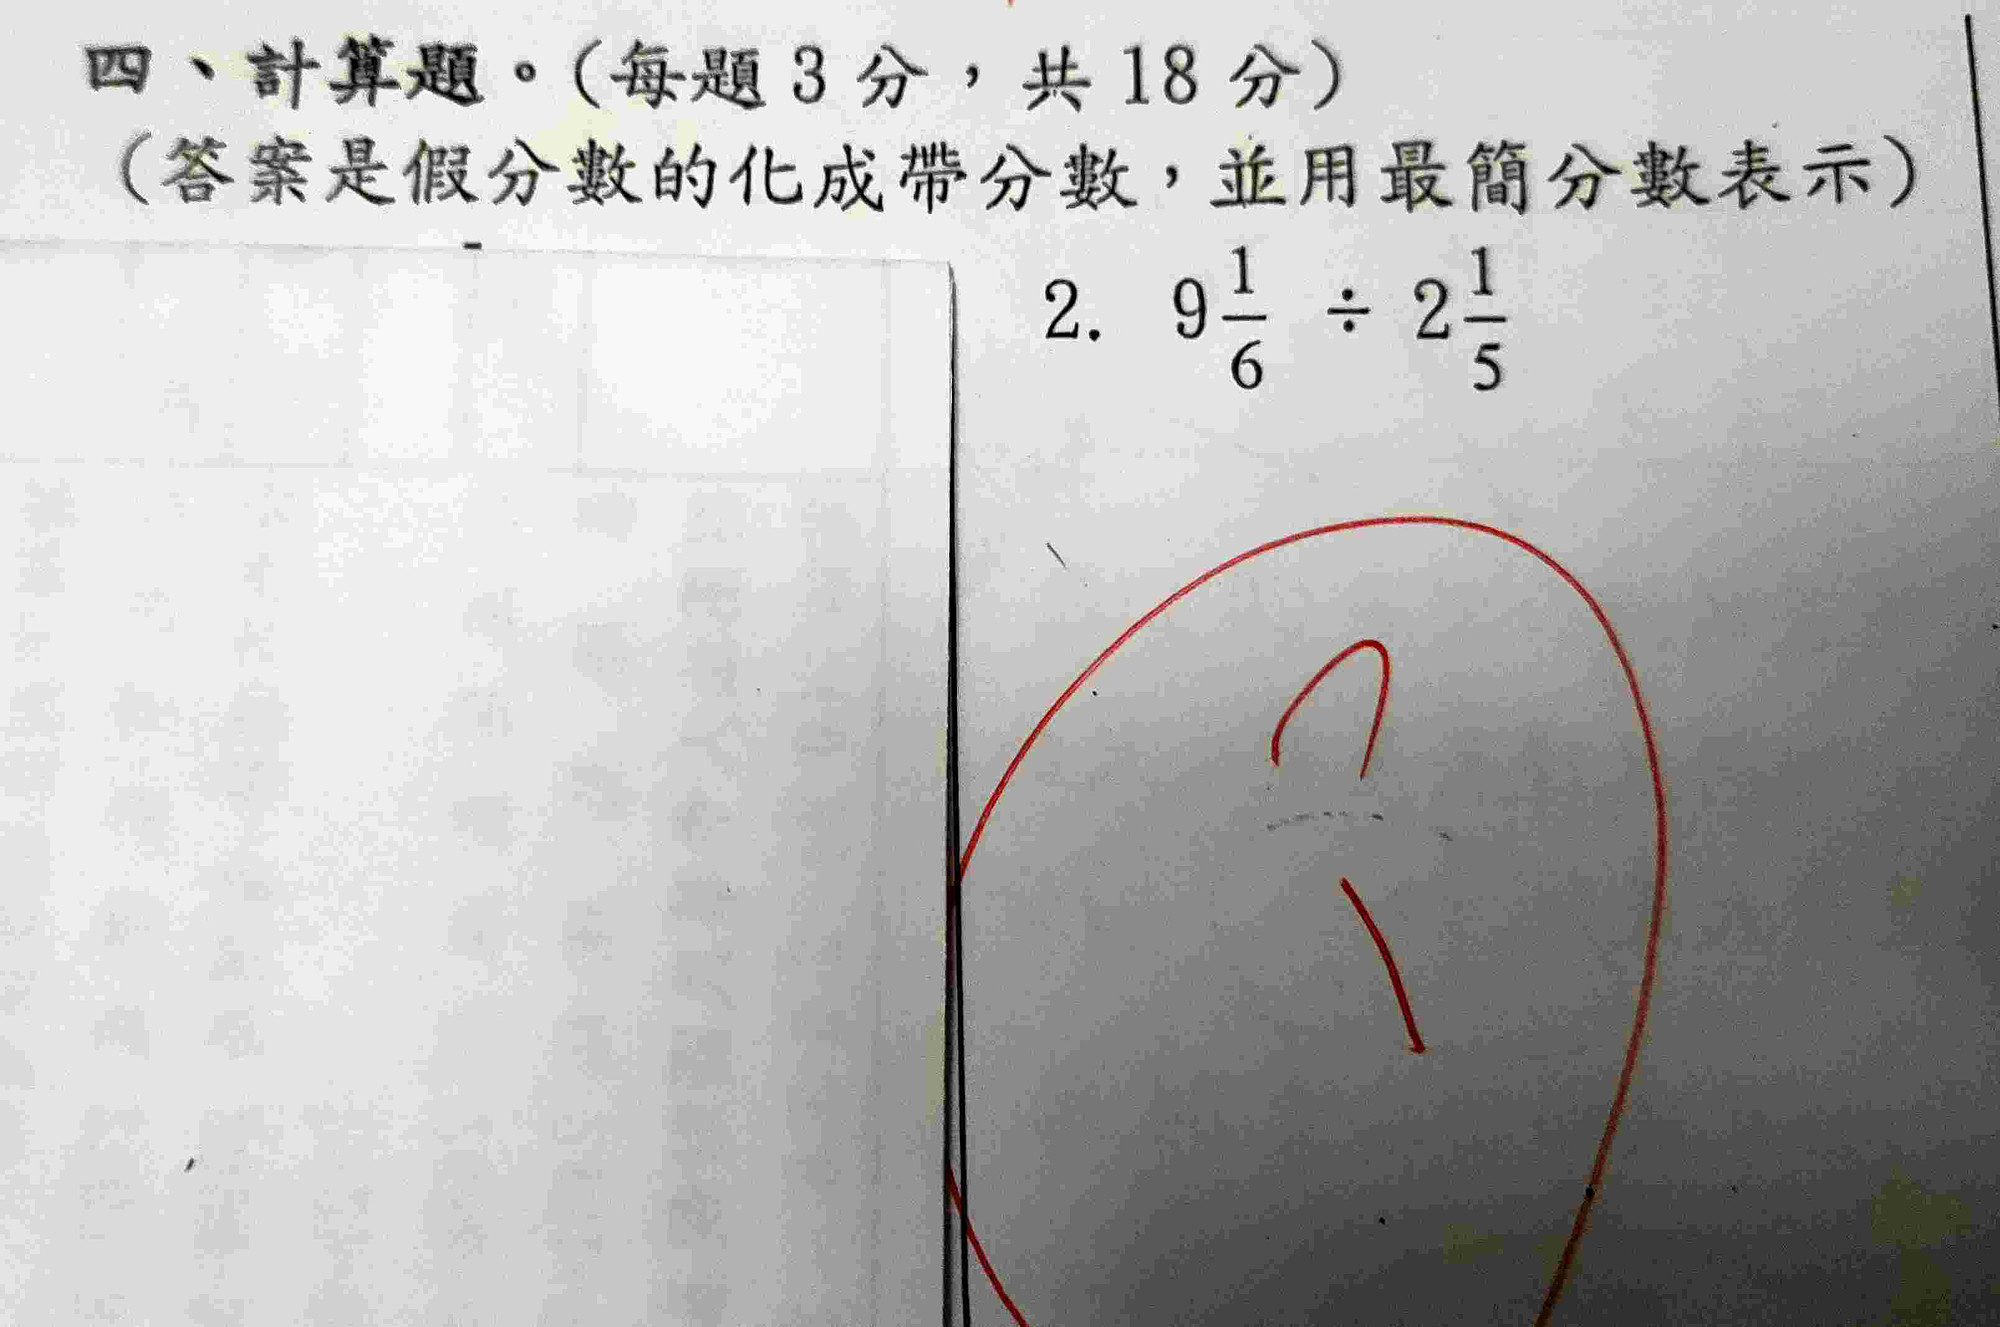 四、計算題。(每題 3 分，共 18 分)
(答案是假分數的化成帶分數，並用最簡分數表示)
2. 9 1/6 ÷ 2 1/5